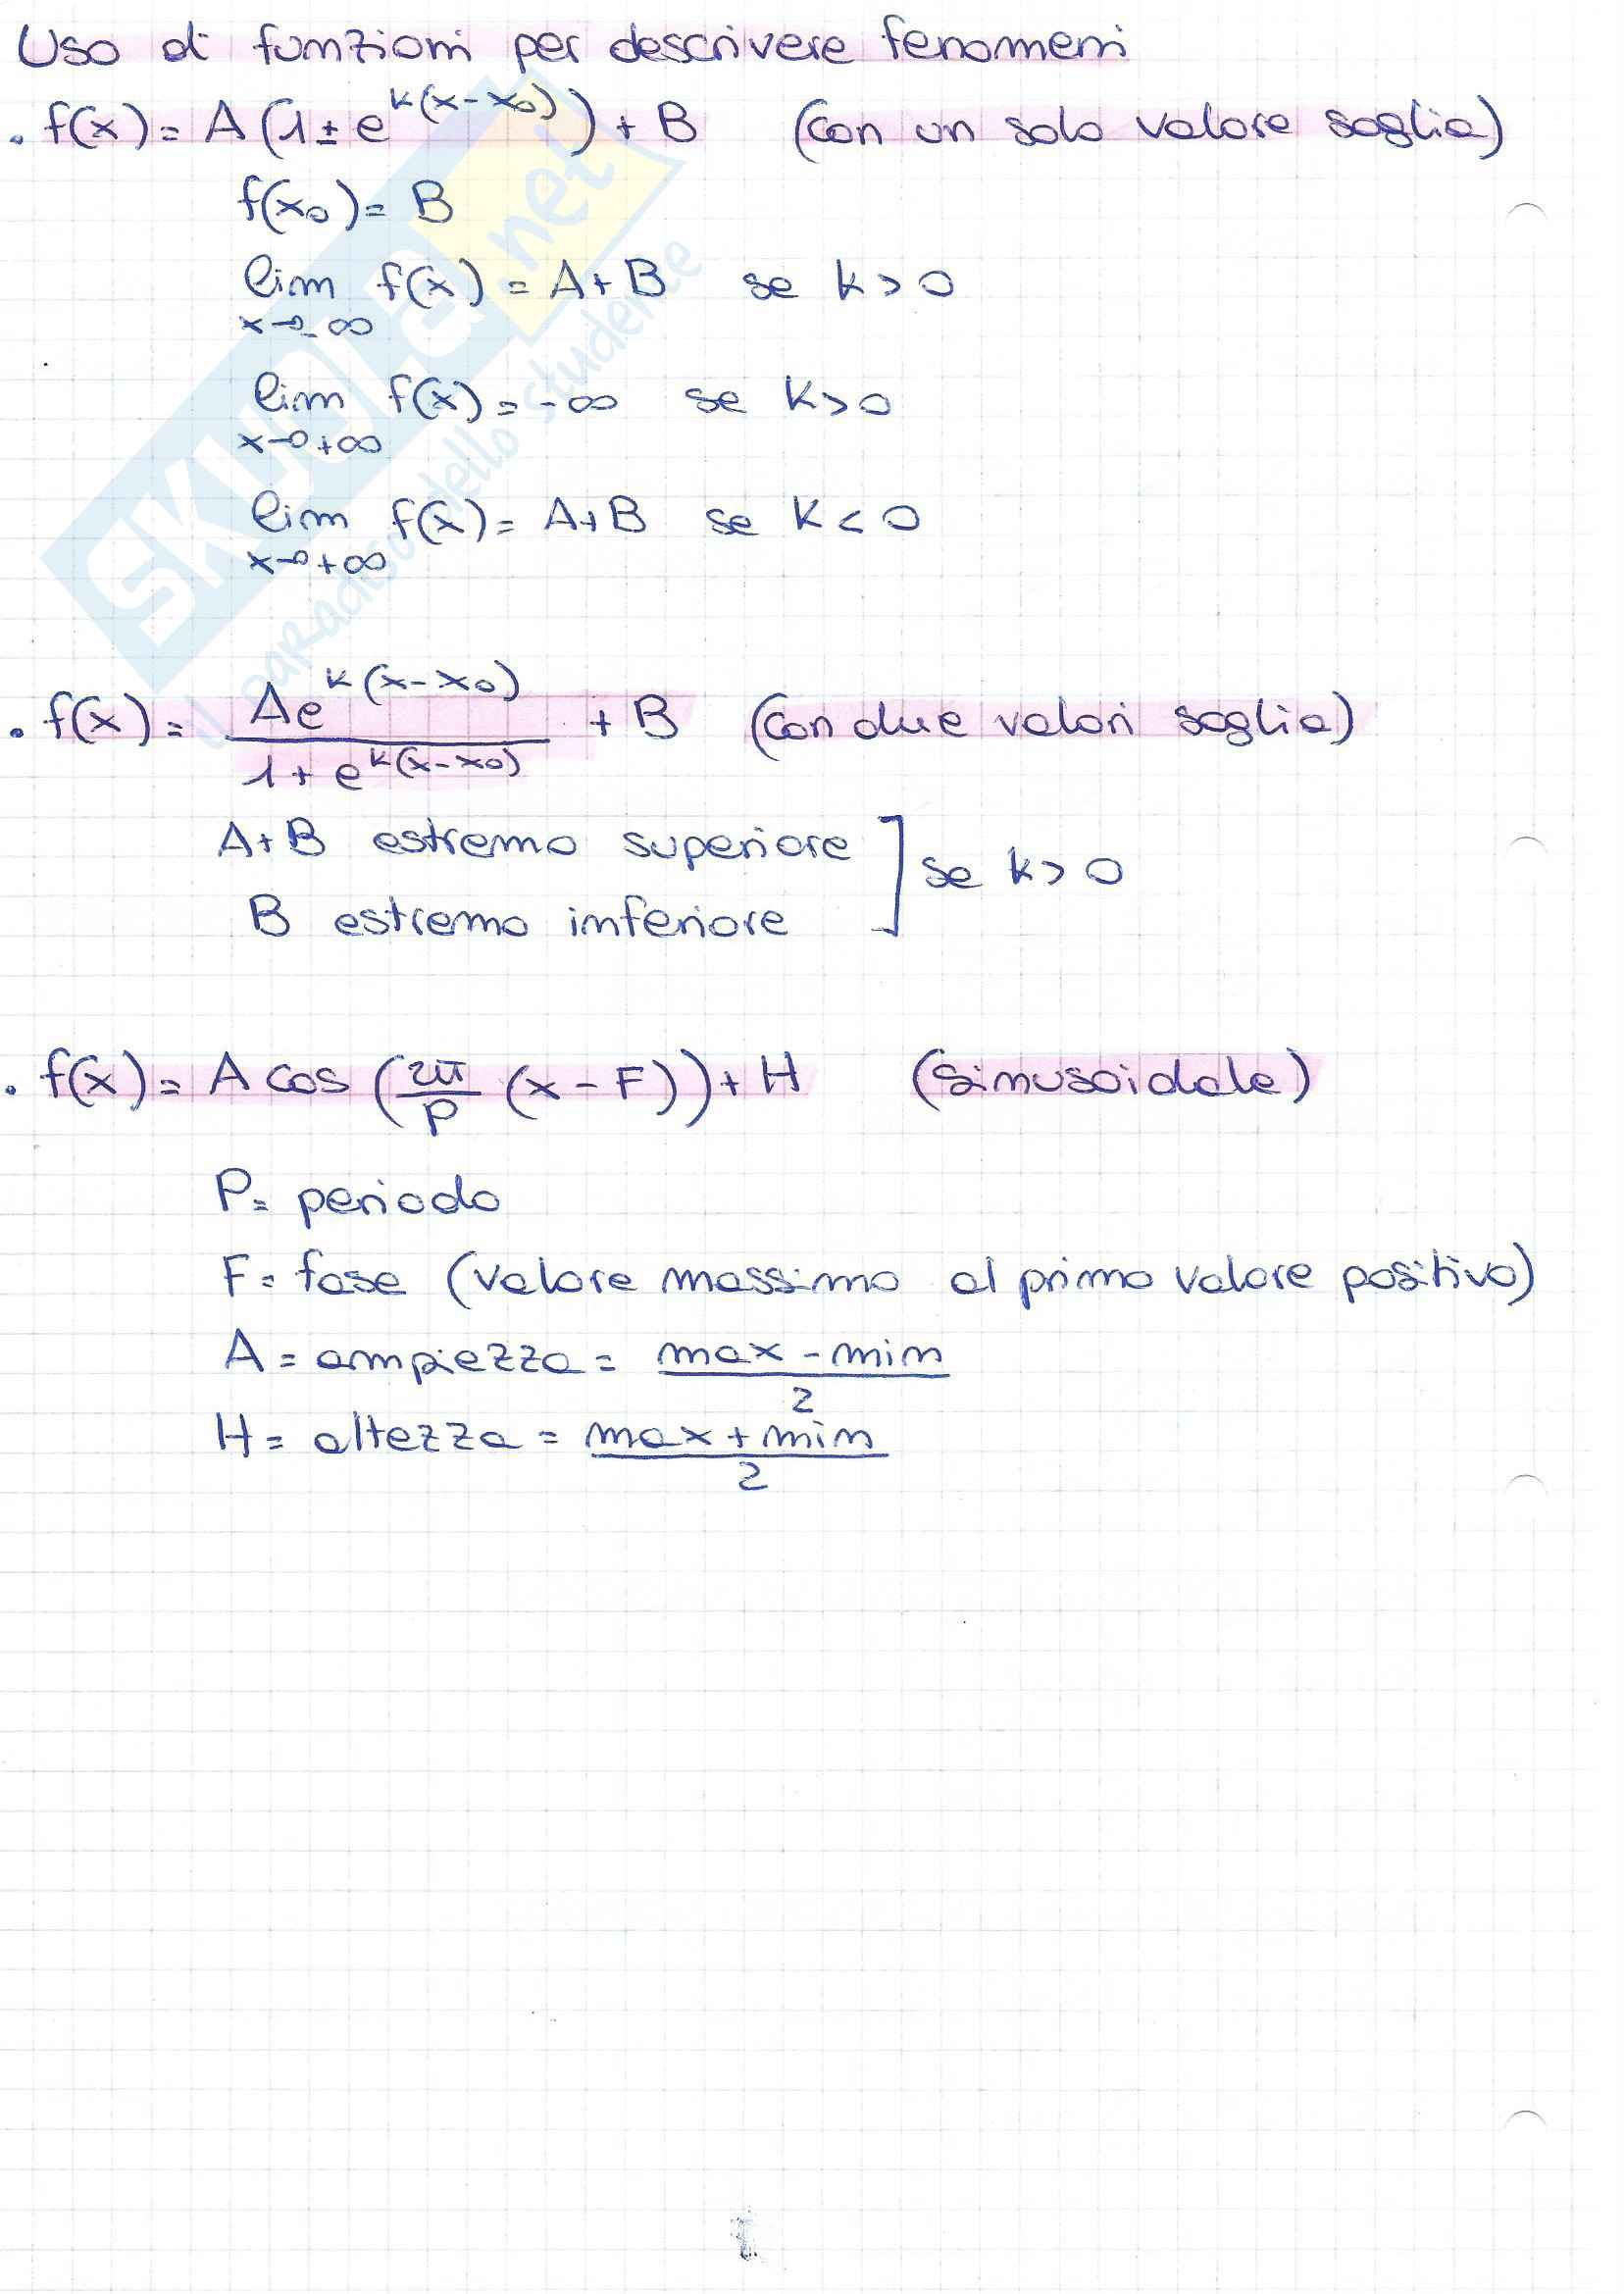 Uso di funzioni per descrivere fenomeni
• f(x) = A(1 ± e^{k(x-x₀)}) + B (con un solo valore soglia)
f(x₀) = B
lim f(x) = A+B se k > 0
x→-∞
lim f(x) = -∞ se k > 0
x→+∞
lim f(x) = A+B se k < 0
x→+∞
• f(x) = Ae^{k(x-x₀)} / 1+e^{k(x-x₀)} + B (con due valori soglia)
A+B estremo superiore
B estremo inferiore ] se k > 0
• f(x) = A cos (2π/P (x-F)) + H (sinusoidale)
P = periodo
F = fase (valore massimo al primo valore positivo)
A = ampiezza = max - min / 2
H = altezza = max + min / 2
SKUOLA.net
il paradiso dello studente